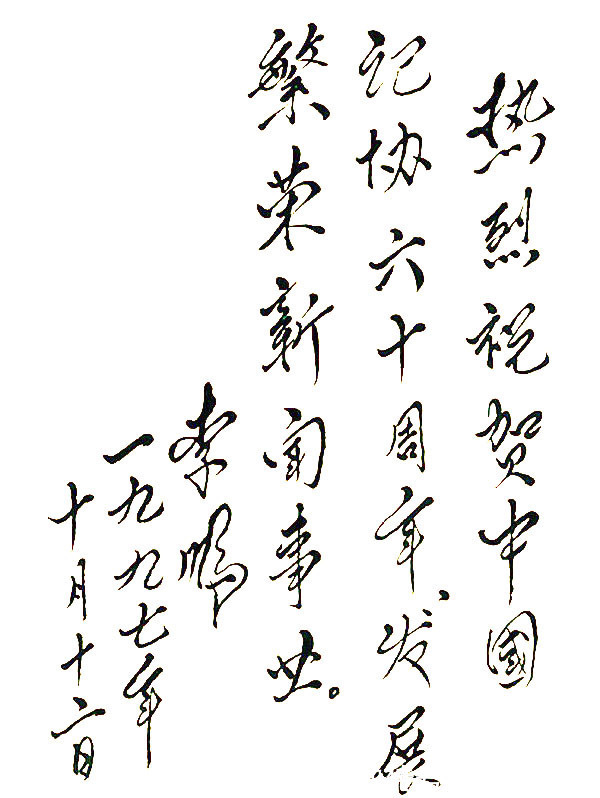 热烈祝贺中國
记协六十周年、发展
繁荣新闻事业。
李鹏
一九九七年
十月十六日